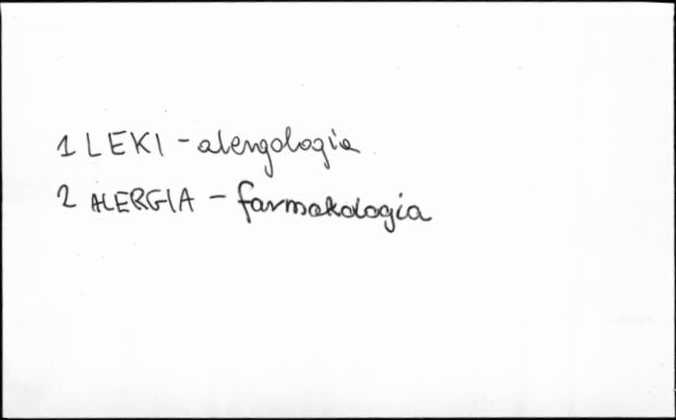 1 LEKI - alergologia
2 ALERGIA - farmakologia